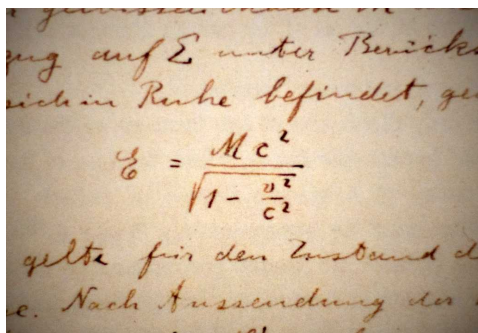 zug auf Σ unter Berücks
sich in Ruhe befindet, ge
E = Mc² / √(1 - v²/c²)
gelte für den Zustand d
e. Nach Aussendung der